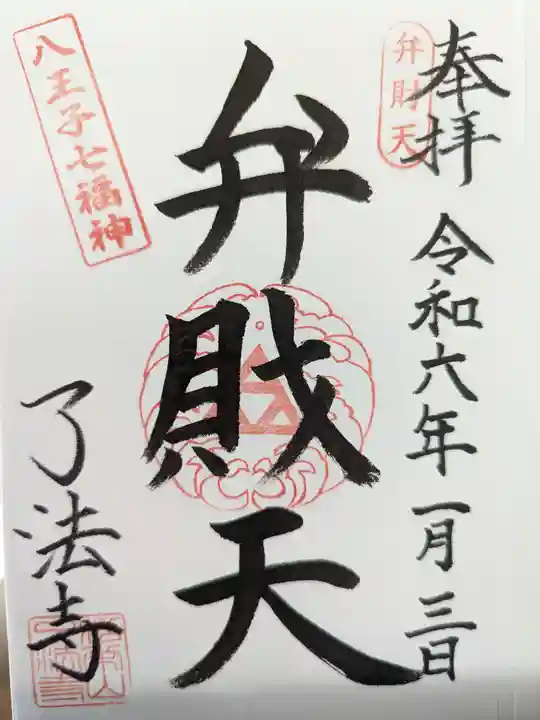 奉拝
弁財天
令和六年一月三日
弁財天
八王子七福神
了法寺